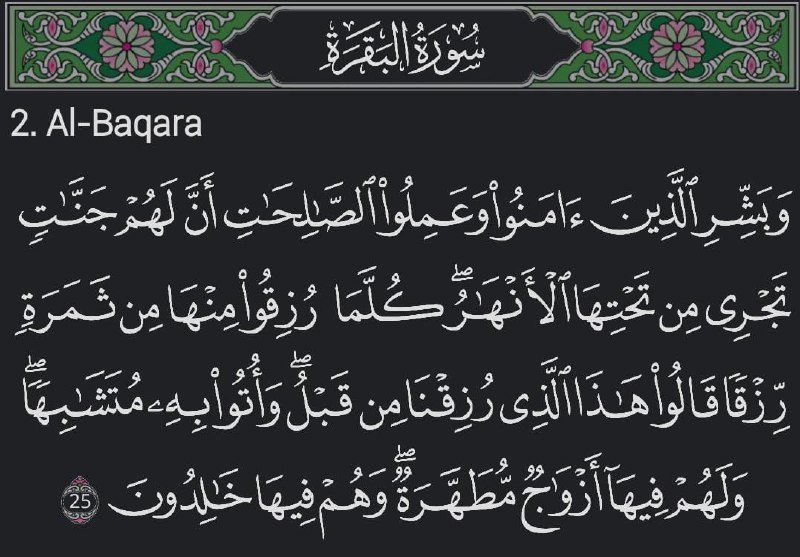 سُورَةُ البَقَرَةِ
2. Al-Baqara
وَبَشِّرِ ٱلَّذِينَ ءَامَنُوا۟ وَعَمِلُوا۟ ٱلصَّـٰلِحَـٰتِ أَنَّ لَهُمْ جَنَّـٰتٍ
تَجْرِى مِن تَحْتِهَا ٱلْأَنْهَـٰرُ ۖ كُلَّمَا رُزِقُوا۟ مِنْهَا مِن ثَمَرَةٍ
رِّزْقًا قَالُوا۟ هَـٰذَا ٱلَّذِى رُزِقْنَا مِن قَبْلُ ۖ وَأُتُوا۟ بِهِۦ مُتَشَـٰبِهًا ۖ
وَلَهُمْ فِيهَآ أَزْوَٰجٌ مُّطَهَّرَةٌ ۖ وَهُمْ فِيهَا خَـٰلِدُونَ 25